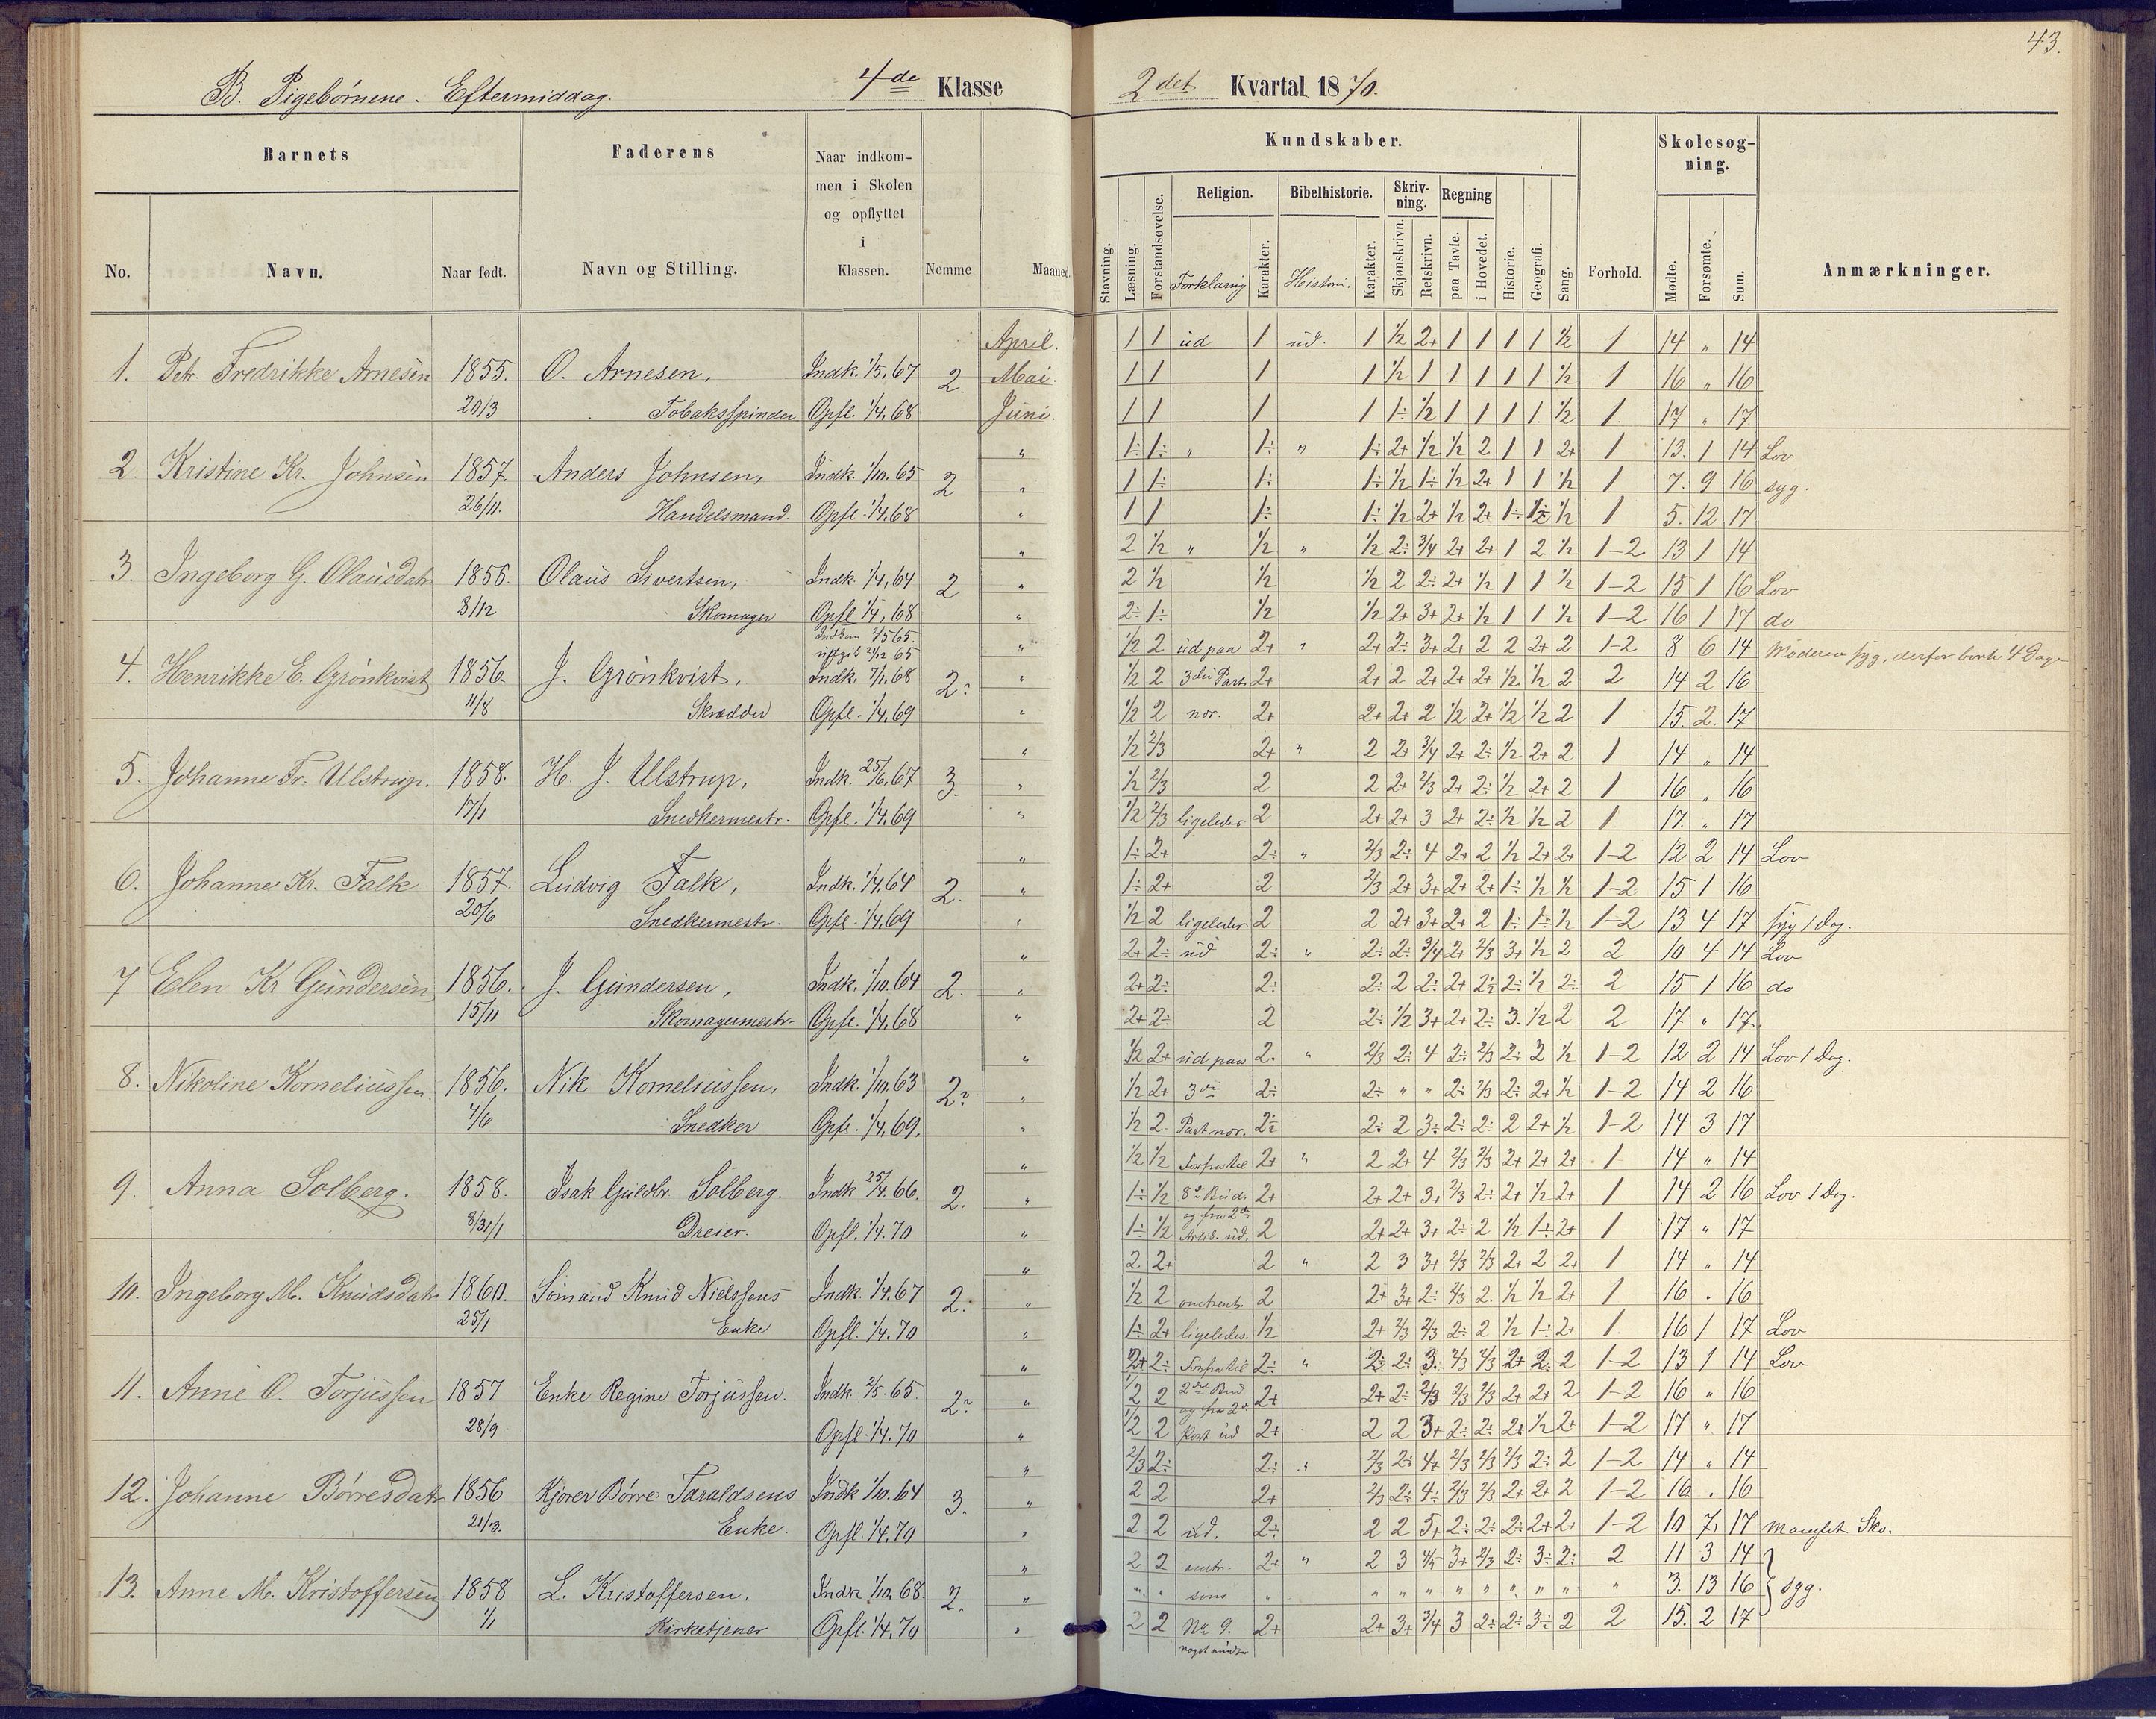 43.
B. Pigebörnene. Eftermiddag. 4de Klasse
2det Kvartal 1870.
Barnets
Faderens
Naar indkom-
men i Skolen
og opflyttet
i
Klassen.
No. Navn. Naar født. Navn og Stilling. Nemme Maaned
Kundskaber.
Skolesøg-
ning.
Religion. Bibelhistorie. Skriv-
ning. Regning
Stavning. Læsning. Forstandsøvelse. Forklaring Karakter. Histori. Karakter. Skjønskrivn. Retskrivn. paa Tavle. i Hovedet. Historie. Geografi. Sang. Forhold. Mødte. Forsømte. Sum. Anmærkninger.
April. 1 1 ud 1 ud. 1 1/2 2+ 1 1 1 1 1/2 1 14 " 14
1. Petr. Fredrikke Arnesen 1855. O. Arnesen, Indk. 1/5.67 2 Mai. 1 1 1 1 1/2 1 1 1 1 1 1/2 1 16 " 16
20/3 Tobaksspinder Opfl. 1/4.68 Juni. 1 1 1 1 1÷ 1/2 1 1 1 1. 1/2 1. 17 " 17
" 1÷ 1÷ " 1÷ " 1÷ 2+ 1/2 1/2 2 1 1 2+ 1 13. 1 14 Lov
2. Kristine Kr. Johnsen 1857. Anders Johnsen, Indk. 1/10.65 2 " 1 1÷ 1÷ 1÷ 1/2 1÷ 1/2 2+ 1 1 1/2 1 7. 9 16 syg.
26/11. Handelsmand. Opfl. 1/4.68 " 1 1 1÷ 1÷ 1/2 2+ 1/2 2+ 1÷ 1/2 1 5. 12 17
" 2 1/2 " 1/2 " 1/2 2÷ 3/4 2+ 2+ 1 2 1/2 1-2 13 1 14
3. Ingeborg G. Olausdatr 1856. Olaus Sivertsen, Indk. 1/4.64 2 " 2 1/2 1/2 1/2 2 2÷ 2+ 1/2 1 1 1/2 1-2 15 1 16 Lov
8/12 Skomager Opfl. 1/4.68 " 2÷ 1÷ 1/2 1/2 2+ 3+ 2+ 1/2 1 1 1/2 1-2 16 1 17 do
Indkom 2/5 65.
21/12 65 " 1/2 2 ud paa 2+ " 2+ 2÷ 3+ 2+ 2 2 2+ 2 1-2 8 6 14 Moderen syg, derfor borte 4 Dage
4. Henrikke E. Grönkvist 1856. J. Grönkvist, Indk. 7/1.68 2? " 1/2 2 3die Part 2+ 2+ 2 2+ 2+ 2+ 1/2 1/2 2 2 14 2 16
11/8 Skrædder Opfl. 1/4.69 " 1/2 2 nor. 2+ 2+ 2+ 2 1/2 2+ 1/2 1/2 2 1 15. 2. 17
" 1/2 2/3 2+ " 2 2+ 3/4 2+ 2÷ 1/2 2+ 2 1 14 " 14
5. Johanne Fr. Ulstrup. 1858. H. J. Ulstrup, Indk. 25/6.67 3. " 1/2 2/3 2 2 2+ 2/3 2+ 2÷ 1/2 2+ 2 1 16 " 16
17/1 Snedkermestr. Opfl. 1/4.69 " 1/2 2/3 ligeledes 2 2+ 2+ 3 2+ 2÷ 1/2 1/2 2 1 17. " 17
" 1÷ 2+ 2÷ " 2/3 2÷ 4 2+ 2 1/2 2+ 2+ 1-2 12 2 14 Lov
6. Johanne Kr. Falk 1857. Ludvig Falk, Indk. 1/4.64 2. " 1÷ 2+ 2 2/3 2+ 3+ 2+ 2+ 1÷ 1/2 1/2 1-2 15 1 16
20/6 Snedkermestr. Opfl. 1/4.69 " 1/2 2 ligeledes 2 2 2+ 3+ 2+ 2 1÷ 1÷ 1/2 1-2 13 4 17 syg 1 Dag.
" 2+ 2÷ ud 2÷ " 2÷ 2÷ 3/4 2+ 2/3 3+ 1/2 2 2 10 4 14 Lov
7 Elen Kr Gundersen 1856. J. Gundersen, Indk. 1/10.64 2. " 2+ 2÷ 2÷ 2÷ 2 2÷ 2+ 2÷ 2÷ 1/2 2÷ 2 15 1 16 do
15/11 Skomagermestr. Opfl. 1/4.68 " 2+ 2÷ 2 2÷ 1/2 3+ 2+ 2÷ 3. 1/2 2 2 17 " 17.
" 1/2 2+ ud paa 2. " 2/3 2÷ 4 2÷ 2/3 2÷ 2 1/2 1-2 12 2 14 Lov 1 Dag.
8. Nikoline Korneliussen. 1856. Nik Korneliussen, Indk. 1/10.63 2? " 1/2 2+ 3die 2÷ 2÷ " " 2÷ 2/3 2÷ 2+ 1/2 1-2 14 2 16
4/6 Snedker Opfl. 1/4.69. " 1/2 2. Part nor. 2÷ 2÷ 2 3÷ 2÷ 2÷ 2 2+ 1/2 1-2 14 3 17
" 1/2 1/2 Forfra til 2+ " 2 2+ 4 2/3 2/3 2+ 2+ 2+ 1 14 " 14
9. Anna Solberg. 1858. Isak Guldbr Solberg. Indk 25/4.66. 2. " 1÷ 1/2 8de Bud. 2+ 2+ 2+ 3+ 2/3 2÷ 2+ 1/2 2+ 1 14 2 16 Lov 1 Dag.
8/31/1 Dreier. Opfl. 1/4.70 " 1÷ 1/2 og fra 2de
Artik. ud. 2 2+ 2+ 3+ 2÷ 2 1/2 1÷ 2+ 1 17 " 17
" 2 2+ 2 " 2 3 3+ 2/3 2/3 2+ 2 2+ 1 14 " 14
10. Ingeborg M. Knudsdatr 1860. Sömand Knud Nielssens Indk. 1/4.67 2. " 1/2 2 omtrent. 2 2+ 3+ 2÷ 2/3 2. 1/2 1/2 2+ 1 16 " 16
25/1 Enke Opfl. 1/4.70 " 1÷ 2+ ligeledes. 1/2 2+ 2/3 2/3 2÷ 2 1/2 1÷ 2+ 1. 16 1 17 Lov
" 2+ 2÷ Forfra til 2÷ " 2÷ 2÷ 3. 2/3 2/3 2+ 2. 2 1-2 13 1 14 Lov
11. Anne O. Torjussen 1857 Enke Regine Torjussen. Indk. 2/5.65. 2? " 1/2 2 2det Bud 2+ 2+ 2÷ 2/3 2/3 2/3 2+ 2+ 2 1-2 16 " 16
28/9 Opfl. 1/4.70 " 1/2 2 og fra 2de
Part ud 2+ 2 2 3+ 2÷ 2÷ 2+ 1/2 2+ 1-2 17 " 17
" 2/3 2÷ 2÷ " 2/3 2÷ 4+ 2/3 2/3 2/3 2÷ 2 1-2 14 " 14
12. Johanne Börresdatr. 1856 Kjører Börre Taraldsens Indk 1/10.64 3. " 2 2 2+ 2/3 2÷ 4÷ 2/3 2/3 2+ 2+ 2 1-2 16 " 16
21/3. Enke. Opfl. 1/4.70 " 2 2 ud. 2÷ 2 2 5+ 2÷ 2÷ 2÷ 2+ 2+ 1-2 10 7. 17 manglet Sko.
" 2 2 omtr. 2+ " 2 3 4/5 3+ 2/3 2÷ 3÷ 2÷ 2 11 3 14
13. Anne M. Kristoffersen 1858 L. Kristoffersen, Indk 1/10.68. 2. " " " som " " " " " " " " " " 3. 13 16 syg.
1/1 Kirketjener Opfl. 1/4.70 " 2 2 No 9. 2+ 2+ 3+ 3/4 3 2÷ 2÷ 3÷ 2 2 15. 2 17
noget mindre